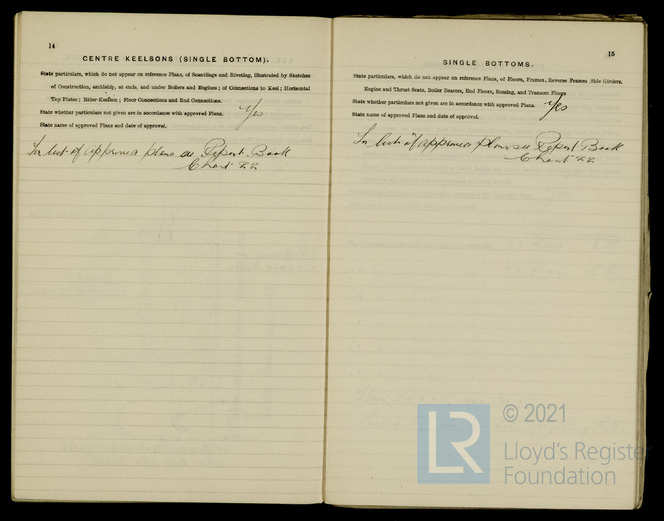 14
CENTRE KEELSONS (SINGLE BOTTOM).
State particulars, which do not appear on reference Plans, of Scantlings and Riveting, illustrated by Sketches
of Construction, amidship, at ends, and under Boilers and Engines; of Connections to Keel; Horizontal
Top Plates; Rider-Keelson; Floor Connections and End Connections.
State whether particulars not given are in accordance with approved Plans. Yes
State name of approved Plans and date of approval.
For list of approved plans see Report Book
Chant 22
15
SINGLE BOTTOMS.
State particulars, which do not appear on reference Plans, of Floors, Frames, Reverse Frames Side Girders,
Engine and Thrust Seats, Boiler Bearers, End Floors, Bossing, and Transom Floors.
State whether particulars not given are in accordance with approved Plans. Yes
State name of approved Plans and date of approval.
For list of approved plans see Report Book
Chant 22
LR
© 2021
Lloyd's Register
Foundation